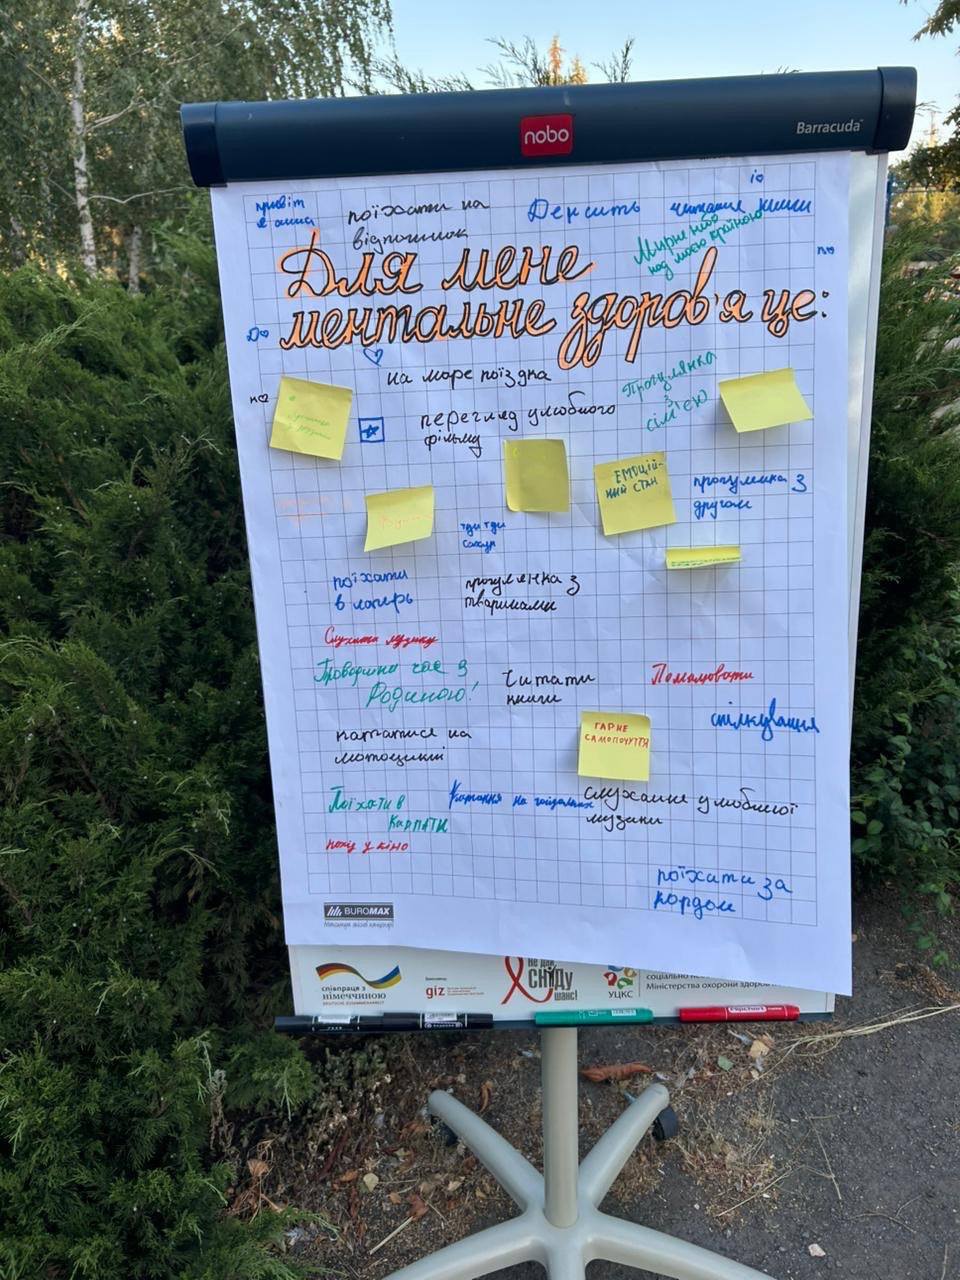 nobo
Barracuda
привіт
поїхати на
відпочинок
читання книги
Мирне небо
над моєю країною
Для мене
ментальне здоров'я це:
на море поїздка
Прогулянка
з
сім'єю
перегляд улюбленого
фільму
ЕМОЦІЙ-
НИЙ СТАН
прогулянка з
другом
поїхати
в лагерь
прогулянка з
тваринами
Слухати музику
Проводити час з
Родиною!
Читати
книги
Помалювати
спілкування
кататися на
мотоциклі
ГАРНЕ
САМОПОЧУТТЯ
Поїхати в
КАРПАТИ
Катання на
слухання улюбленої
музики
піти у кіно
поїхати за
кордон
BUROMAX
співпраця з
німеччиною
DEUTSCHE ZUSAMMENARBEIT
giz
Не дай
СНІДу
шанс!
УЦКС
Міністерства охорони здоров